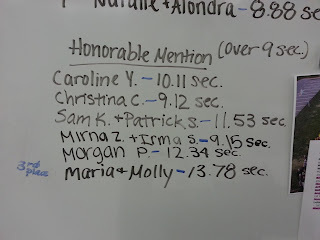 Natalie + Alondra - 8.88 sec
Honorable Mention (over 9 sec.)
Caroline Y. - 10.11 sec.
Christina C. - 9.12 sec.
Sam K. + Patrick S. - 11.53 sec.
Mirna Z. + Irma S. - 9.15 sec.
Morgan P. - 12.34 sec.
3rd place Maria + Molly - 13.78 sec.